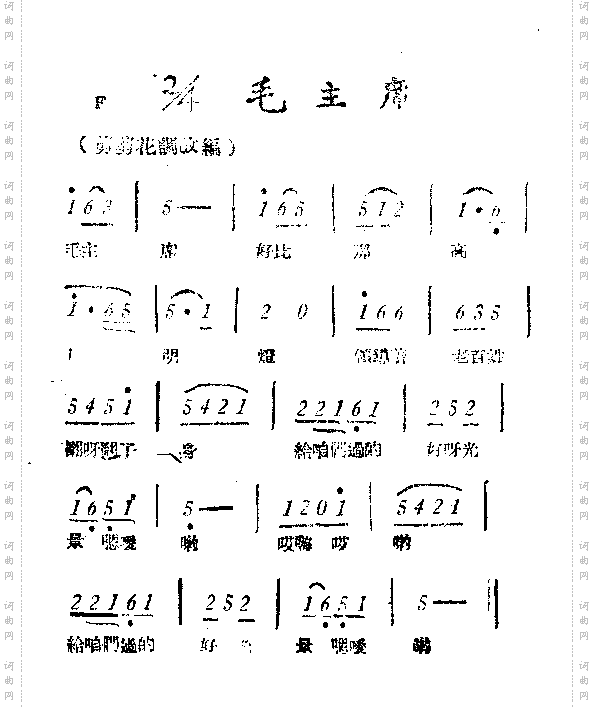 F 2/4 毛主席
(剪剪花調改編)
1 6 3 | 5 — | 1 6 5 | 5 1 2 | 1 · 6 |
毛主 席 好比 那 高
1 · 6 5 | 5 · 1 | 2 0 | 1 6 6 | 6 3 5 |
明 燈 領導着 老百姓
5 4 5 1 | 5 4 2 1 | 2 2 1 6 1 | 2 5 2 |
翻呀翻了 身 給咱們過的 好呀光
1 6 5 1 | 5 — | 1 2 0 1 | 5 4 2 1 |
景 喲 哎嗨 哎 喲
2 2 1 6 1 | 2 5 2 | 1 6 5 1 | 5 — ‖
給咱們過的 好 景 喲
词曲网